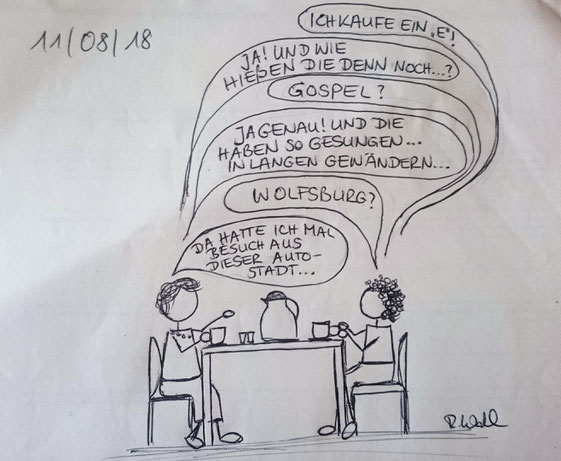 11/08/18
ICH KAUFE EIN „E"!
JA! UND WIE
HIEßEN DIE DENN NOCH...?
GOSPEL?
JAGENAU! UND DIE
HABEN SO GESUNGEN...
IN LANGEN GEWÄNDERN...
WOLFSBURG?
DA HATTE ICH MAL
BESUCH AUS
DIESER AUTO-
STADT...